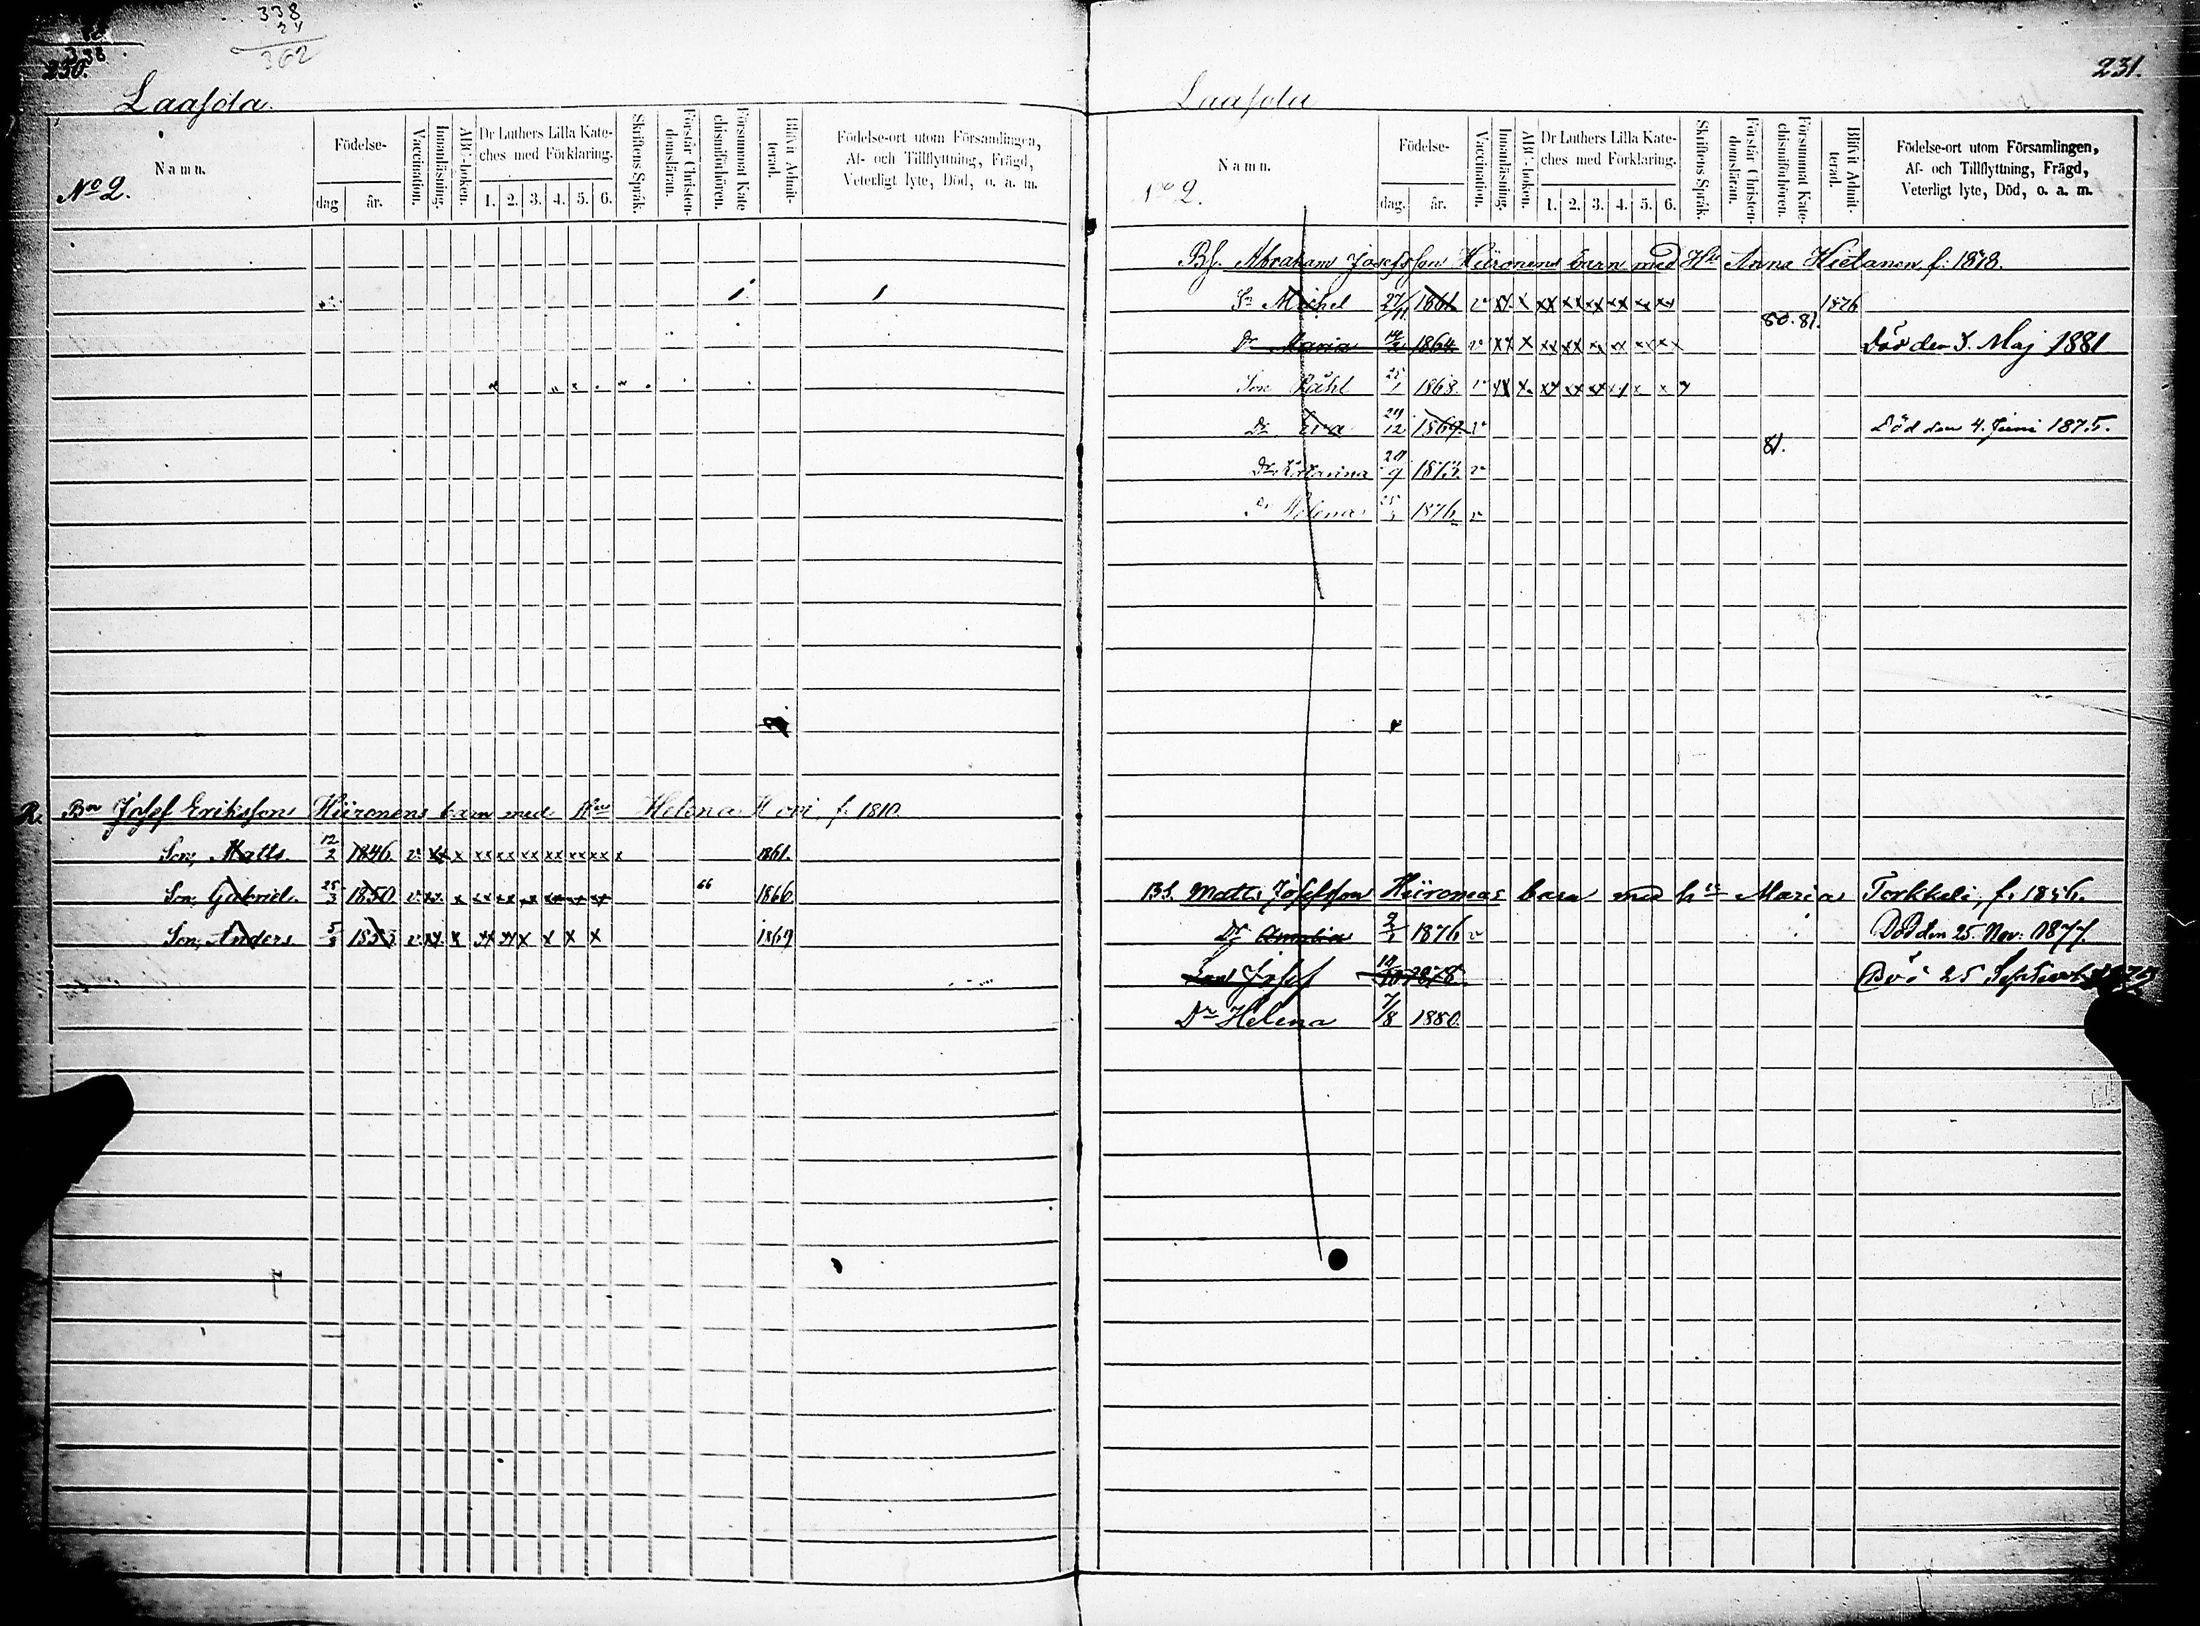 338
24
362
338
230.
Laassola.
No 2.
Namn.
Födelse-
dag
år.
Vaccination.
Innanläsning.
ABC-boken.
Dr Luthers Lilla Kate-
ches med Förklaring.
1. 2. 3. 4. 5. 6.
Skriftens Språk.
Förstår Christen-
domsläran.
Försummat Kate
chismiförhören.
Blifvit Admit-
terad.
Födelse-ort utom Församlingen,
Af- och Tillflyttning, Frägd,
Veterligt lyte, Död, o. a. m.
R. Bn Josef Eriksson Hiironens barn med Hu Helena Hovi, f. 1810.
Son, Matts. 12/2 1846 v xx x xx xx xx xx xx xx x 1861.
Son, Gabriel. 25/3 1850 v xx x xx xx xx xx xx xx 66 1866
Son, Anders 5/3 1853 v xx x xx xx x x x x 1869
231.
Laassola
No 2.
Namn.
Födelse-
dag.
år.
Vaccination.
Innanläsning.
ABC-boken.
Dr Luthers Lilla Kate-
ches med Förklaring.
1. 2. 3. 4. 5. 6.
Skriftens Språk.
Förstår Christen-
domsläran.
Försummat Kate-
chismiförhören.
Blifvit Admit-
terad.
Födelse-ort utom Församlingen,
Af- och Tillflyttning, Frägd,
Veterligt lyte, Död, o. a. m.
Bs. Abraham Josefsson Hiironens barn med Hu Anna Hietanen, f. 1818.
Sn Michel 27/11 1861 v xx x xx xx xx xx xx xx 1876
Dr Maria 1864 v xx x xx xx xx xx xx xx 80. 81. Död den 3. Maj 1881
Son Påhl 25/1 1868. v xx x xx xx xx xx x x
Dr Eva 29/12 1869 v Död den 4. Juni 1875.
Dr Katarina 20/9 1873 v 81.
Dr Helena 1876 v
Bs. Matts Josefsson Hiironens barn med hu Maria Torkkeli, f. 1856.
Dr 1876 v Död den 25. Nov. 1877.
Son Josef 10/10 1878 Död 25 Septemb. 1879
Dr Helena 7/8 1880.